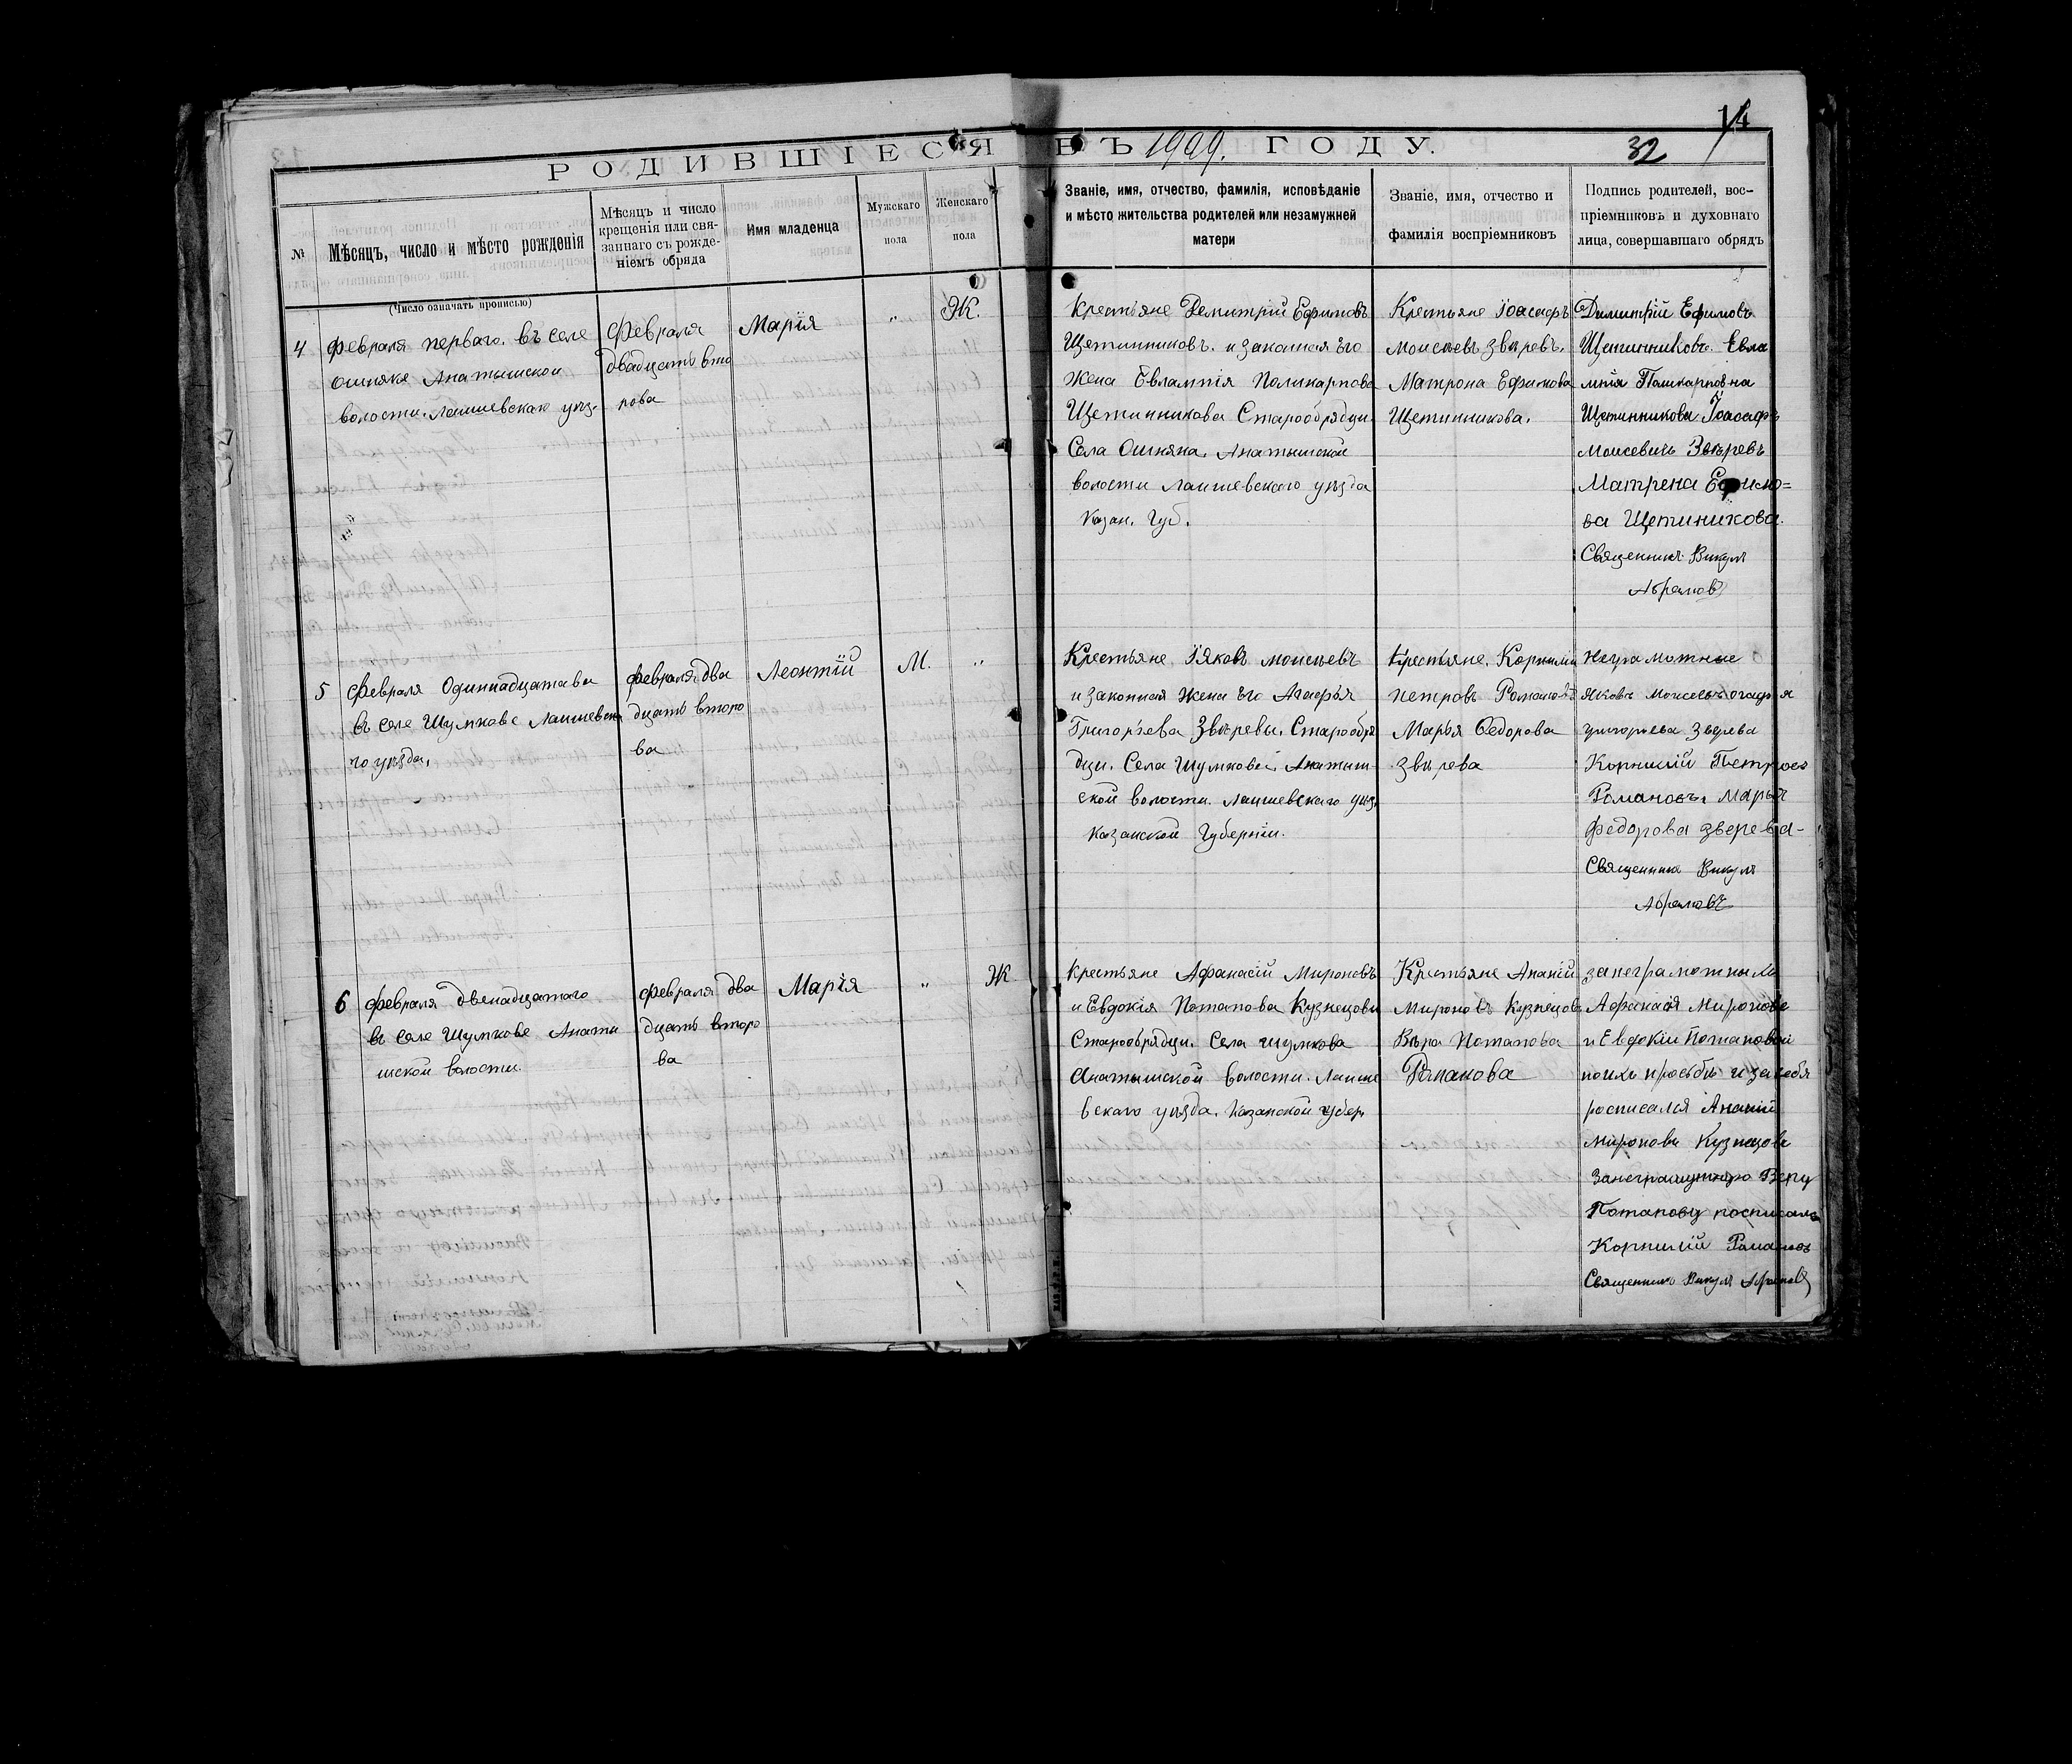 14
32
РОДИВШІЕСЯ ВЪ 1909. ГОДУ.
№
Мѣсяцъ, число и мѣсто рожденія
Мѣсяцъ и число
крещенія или свя-
заннаго съ рожде-
ніемъ обряда
Имя младенца
Мужскаго
пола
Женскаго
пола
Званіе, имя, отчество, фамилія, исповѣданіе
и мѣсто жительства родителей или незамужней
матери
Званіе, имя, отчество и
фамилія воспріемниковъ
Подпись родителей, вос-
пріемниковъ и духовнаго
лица, совершавшаго обрядъ
(Число означать прописью)
4
Февраля перваго. въ селе
Ошняке Анатышской
волости. Лаишевскаго уѣз.
Февраля
двадцать вто
рова
Марія
"
Ж.
Крестьяне Демитрій Ефимовъ
Щетинниковъ. и законная Его
Жена Евлампія Поликарпова
Щетинникова Старообрядцы
Села Ошняка. Анатышской
волости Лаишевскаго уѣзда
Казан. Губ.
Крестьяне Іоасафъ
Моисеевъ Звѣревъ.
Матрона Ефимова
Щетинникова.
Димитрій Ефимовъ
Щетинниковъ Евла
мпія Поликарповна
Щетинникова Іоасафъ
Моисевичъ Звѣревъ
Матрена Ефимо=
ва Щетиникова.
Священникъ Викулъ
Абрамовъ
5
Февраля Одиннадцатава
въ селе Шумкове Лаишевска
го уѣзда.
Февраля два
дцать второ
ва
Леонтій
М.
"
Крестьяне Іяковъ Моисеевъ
и законная Жена Его Агафья
Григорьева Звѣревы. Старообря
дцы. Села Шумкове. Анатыш
ской волости. Лаишевскаго уѣз.
Казанской Губерніи.
Крестьяне. Корнилій
Петровъ Романовъ
Марья Федорова
Звѣрева
Неграмотные
Яковъ Моисеевъ огафья
григорьева Зверева
Корнилій Петровъ
Романовъ. Марья
Федорова зверева-
Священникъ Викулъ
Абрамовъ
6
Февраля двенадцатого
въ селе Шумкове Анаты
шской волости.
Февраля два
дцать второ
ва
Марія
"
Ж
Крестьяне Афанасій Мироновъ
и Евдокія Потапова Кузнецовы
Старообрядцы. Села Шумкова
Анатышской волости. Лаише
вскаго уѣзда. Казанской губер.
Крестьяне Ананій
Мироновъ Кузнецовъ
Вѣра Потапова
Романова
за неграмотныхъ
Афанасія Миронова
и Евдокіи Потаповой
по ихъ просьбѣ и за себя
росписался Ананій
Мироновъ Кузнецовъ
За неграмутную Веру
Потапову росписалъ
Корнилій Романовъ
Священникъ Викулъ Абрамовъ